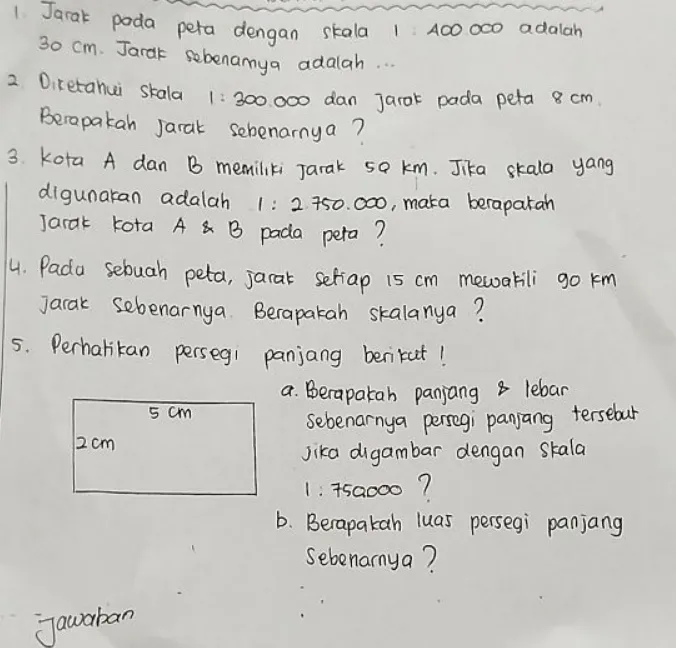 1. Jarak pada peta dengan skala 1 : 400.000 adalah
30 cm. Jarak sebenarnya adalah ...
2. Diketahui skala 1 : 300.000 dan jarak pada peta 8 cm.
Berapakah jarak sebenarnya ?
3. Kota A dan B memiliki jarak 50 km. Jika skala yang
digunakan adalah 1 : 2.750.000, maka berapakah
jarak kota A & B pada peta ?
4. Pada sebuah peta, jarak setiap 15 cm mewakili 90 km
jarak sebenarnya. Berapakah skalanya ?
5. Perhatikan persegi panjang berikut !
5 cm
2 cm
a. Berapakah panjang & lebar
sebenarnya persegi panjang tersebut
jika digambar dengan skala
1 : 750000 ?
b. Berapakah luas persegi panjang
sebenarnya ?
Jawaban